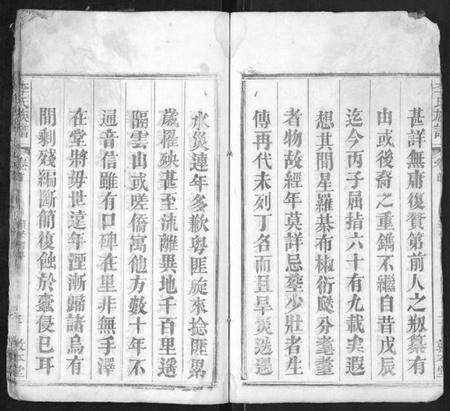 甚詳無庸復贅第前人之輯纂有
由或後裔之重鐫不繼自昔戊辰
迄今丙子屈指六十有九載矣遐
想其間星羅碁布椒衍颷分耄耋
者物故經年莫詳忌塟少壯者生
傳再代未列丁名而且旱災迭遭
水災連年多歉粤匪旋來捻匪累
歲摧殃甚至流離異地千百里遥
隔雲山或嗟僑寓他方數十年不
通音信雖有口碑在里非無手澤
在堂將毋世遠年湮漸歸諸烏有
間剩殘編斷簡復蝕於蠹侵已耳
李氏族譜 卷首